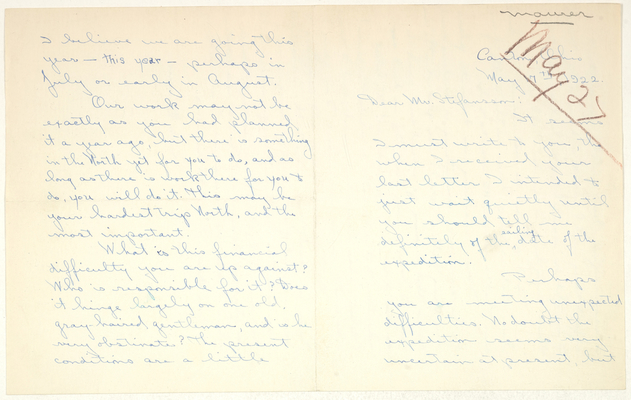 Maurer
May 27
Canton, Ohio
May 7th, 1922.
Dear Mr. Stefansson:
It seems
I must write to you, tho
when I received your
last letter I intended to
just wait quietly until
you should tell me
definitely of the sailing date of the
expedition.
Perhaps
you are meeting unexpected
difficulties. No doubt the
expedition seems very
uncertain at present, but
I believe we are going this
year — this year — perhaps in
July or early in August.
Our work may not be
exactly as you had planned
it a year ago, but there is something
in the North yet for you to do, and as
long as there is work there for you to
do, you will do it. This may be
your hardest trip North, and the
most important.
What is this financial
difficulty you are up against?
Who is responsible for it? Does
it hinge largely on one old,
gray haired gentleman, and is he
very obstinate? The present
conditions are a little